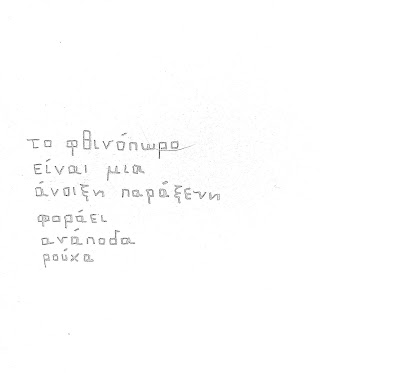 το φθινόπωρο
είναι μια
άνοιξη παράξενη
φοράει
ανάποδα
ρούχα